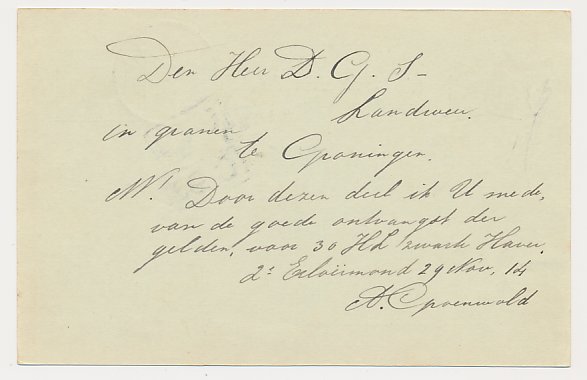 Den Heer D. G. S-
Landweer.
in granen
te Groningen.
M! Door dezen deel ik U mede,
van de goede ontvangst der
gelden, voor 30 HL zwarte Haver.
2e Exloërmond 29 Nov, 14
A. Groenwold